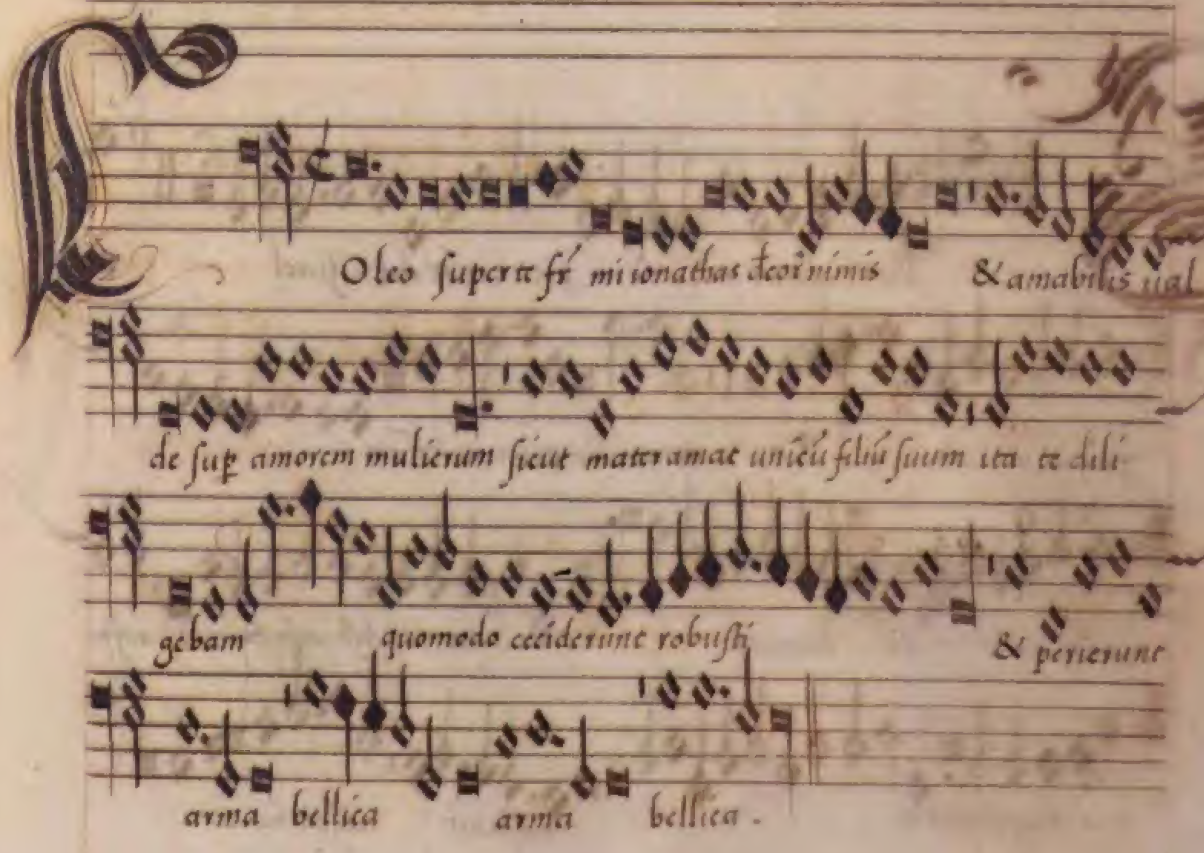 DOleo super te fr̄ mi ionathas decor̄ nimis & amabilis ual
de sup̱ amorem mulierum sicut mater amat unicū filiū suum ita te dili-
gebam quomodo ceciderunt robusti & perierunt
arma bellica arma bellica.